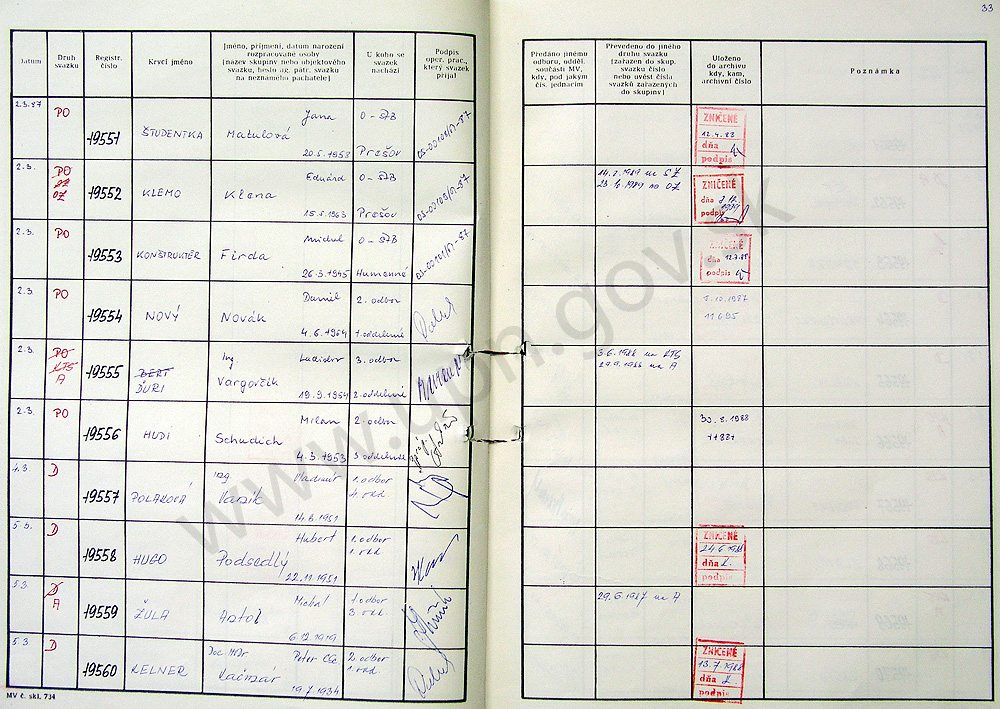 33
Datum
Druh
svazku
Registr.
číslo
Krycí jméno
Jméno, příjmení, datum narození
rozpracované osoby
(název skupiny nebo objektového
svazku, heslo ag. pátr. svazku
na neznámého pachatele)
U koho se
svazek
nachází
Podpis
oper. prac.,
který svazek
přijal
Předáno jinému
odboru, odděl.
součásti MV,
kdy, pod jakým
čís. jednacím
Převedeno do jiného
druhu svazku
(zařazen do skup.
svazku číslo
nebo uvést čísla
svazků zařazených
do skupiny)
Uloženo
do archivu
kdy, kam,
archivní číslo
Poznámka
2.3.87 PO 19551 ŠTUDENTKA Jana
Matulová
20.5.1953
O-ŠTB
Prešov
ZNIČENÉ
dňa
podpis
2.3. PO
OZ
19552 KLEMO Eduard
Klena
1963
O-ŠTB
Prešov
14.2.1989 na
1989 na OZ
ZNIČENÉ
dňa
podpis
2.3. PO 19553 KONŠTRUKTÉR Michal
Firda
26.3.1945
O-ŠTB
Humenné
ZNIČENÉ
dňa
podpis
2.3 PO 19554 NOVÝ Daniel
Novák
4.6.1964
2. odbor
1. oddelenie
10.1987
11695
2.3. PO
KTS
A
19555 BERT
ĎURI
Ing Ladislav
Vargovčík
19.9.1954
3. odbor
2. oddelenie
3.6.1988 na KTS
29.9.1988 na A
2.3. PO 19556 HUDI Milan
Schudich
4.3.1953
2. odbor
3. oddelenie
30.8.1988
11881
4.3. D 19557 POLAKOVÁ Ing. Vladimír
14.8.1951
1. odbor
5.3. D 19558 HUGO Hubert
Podsedlý
22.11.1951
1. odbor
ZNIČENÉ
24.6.1988
dňa
podpis
5.3 D
A
19559 ŽULA Michal
Antol
6.12.1919
1. odbor
29.6.1987 na A
5.3 D 19560 KELNER Doc MrDr Peter CSc
Kačmar
19.7.1934
2. odbor
ZNIČENÉ
13.7.1988
dňa
podpis
MV č. skl. 734
www.upn.gov.sk